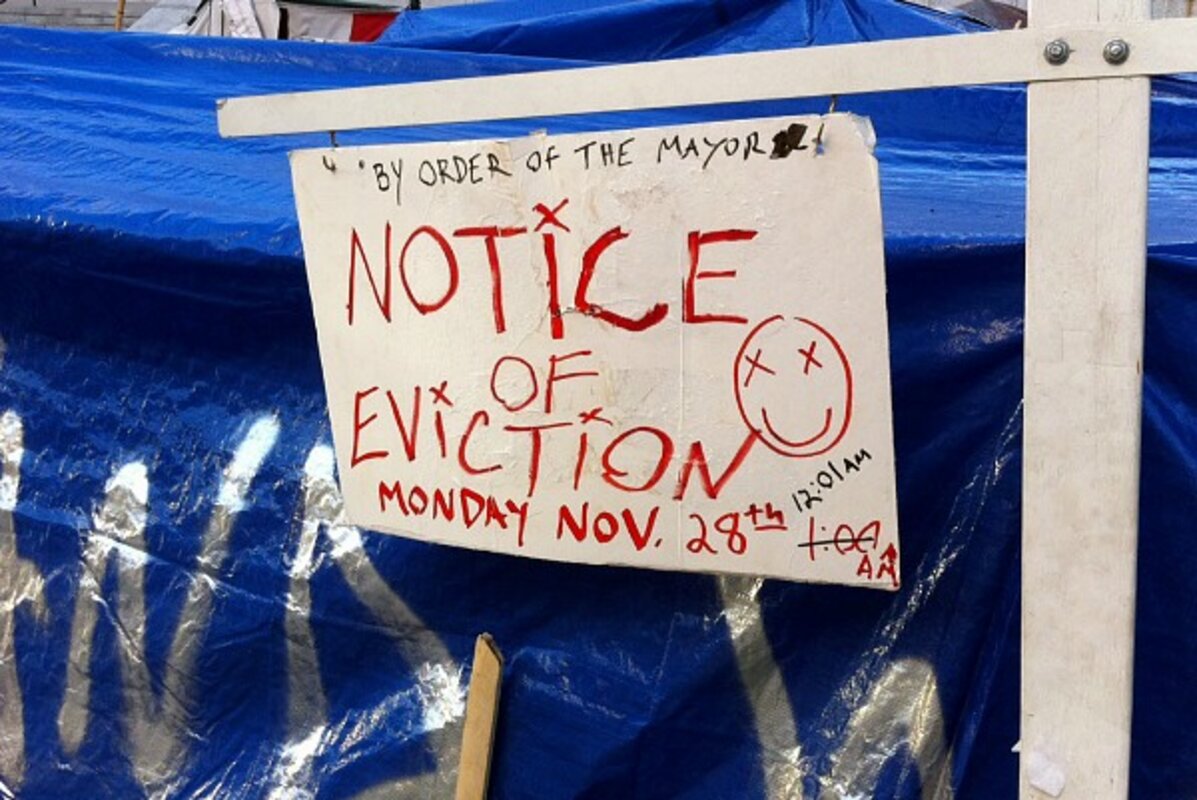 "BY ORDER OF THE MAYOR"
NOTiCE
OF
EViCTiON
MONDAY NOV. 28th 12:01 AM
1:00 AM